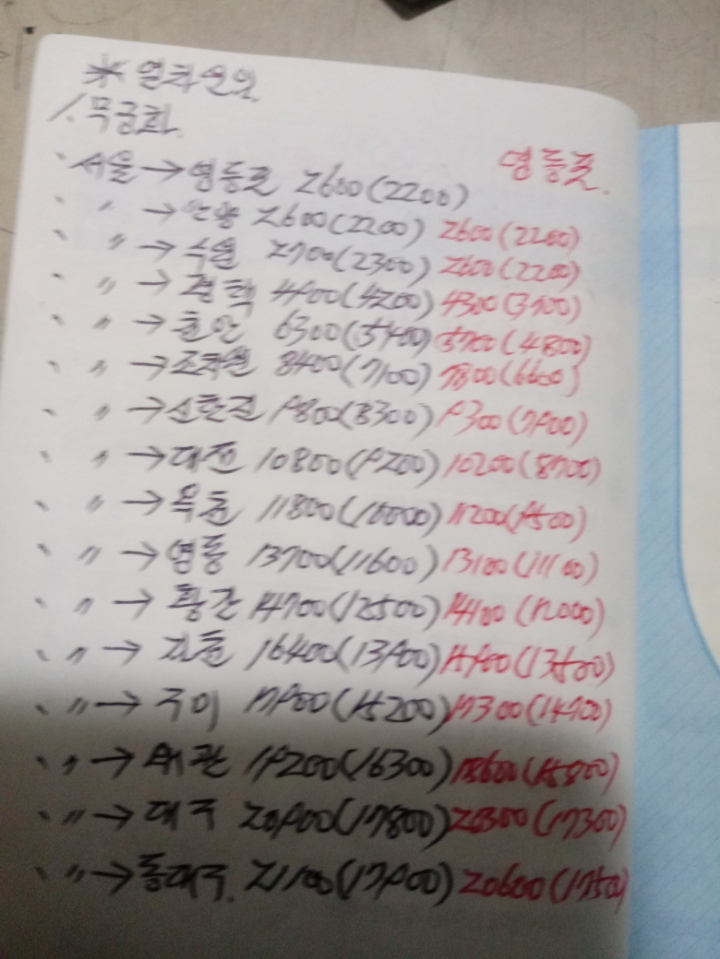 * 열차운임
1. 무궁화
영등포.
· 서울 → 영등포 2600(2200)
· 〃 → 안양 2600(2200) 2600(2200)
· 〃 → 수원 2700(2300) 2600(2200)
· 〃 → 평택 4900(4200) 4300(3700)
· 〃 → 천안 6300(5400) 5700(4800)
· 〃 → 조치원 8400(7100) 7800(6600)
· 〃 → 신탄진 9800(8300) 9300(7900)
· 〃 → 대전 10800(9200) 10200(8700)
· 〃 → 옥천 11800(10000) 11200(9500)
· 〃 → 영동 13700(11600) 13100(11100)
· 〃 → 황간 14700(12500) 14100(12000)
· 〃 → 김천 16400(13900) 15900(13500)
· 〃 → 구미 17900(15200) 17300(14700)
· 〃 → 왜관 19200(16300) 18600(15800)
· 〃 → 대구 20900(17800) 20300(17300)
· 〃 → 동대구. 21100(17900) 20600(17500)